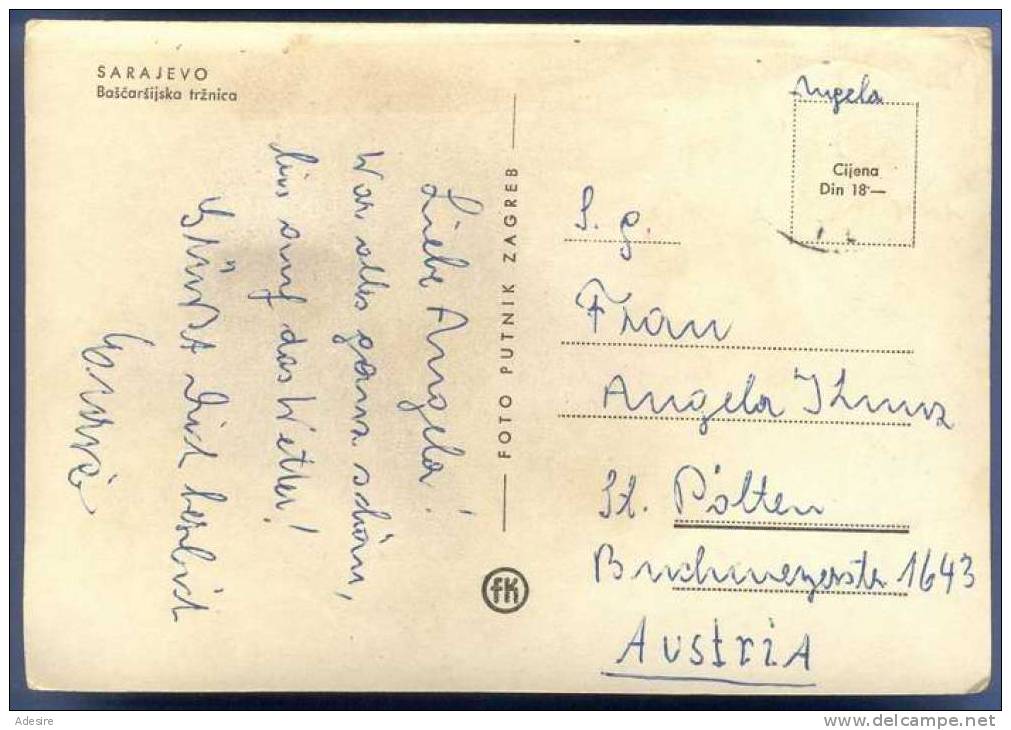 SARAJEVO
Baščaršijska tržnica
Liebe Angela!
War alles ganz schön,
bis auf das Wetter!
Grüßt Dich herzlich
FOTO PUTNIK ZAGREB
fk
Angela
Cijena
Din 18·—
S. g.
Frau
Angela
St. Pölten
1643
AUSTRIA
Adesire
www.delcampe.net